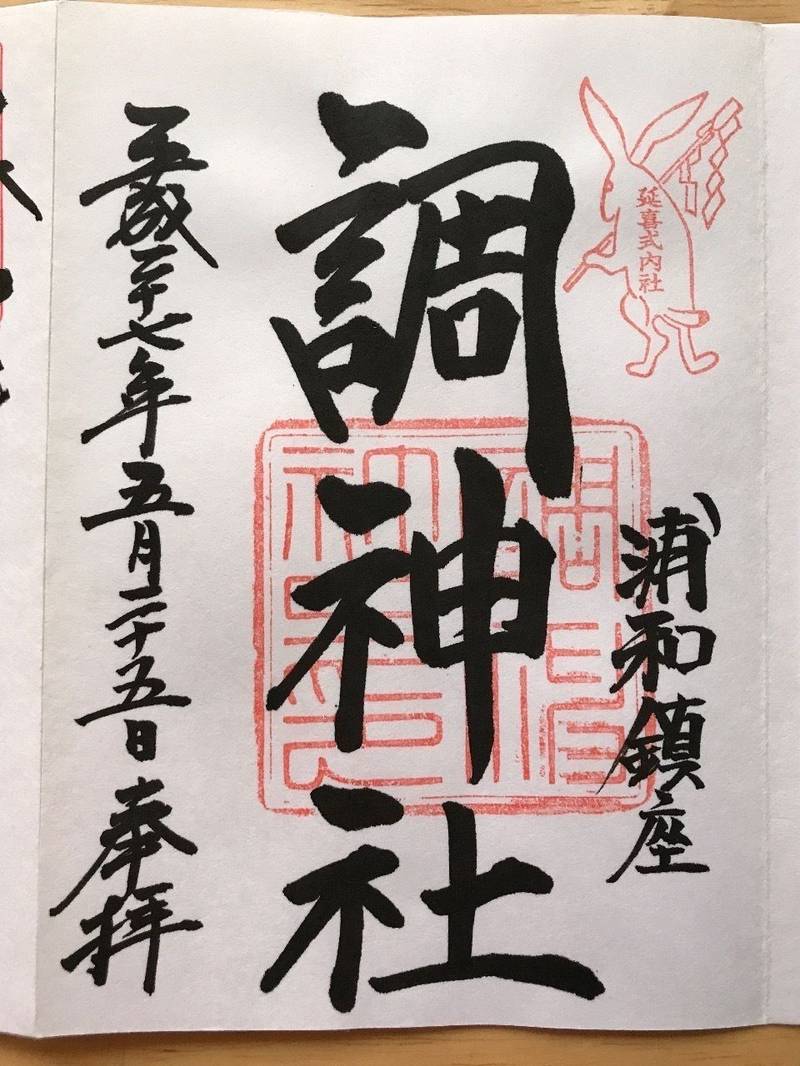 延喜式内社
浦和鎮座
調神社
平成二十七年五月二十五日奉拝